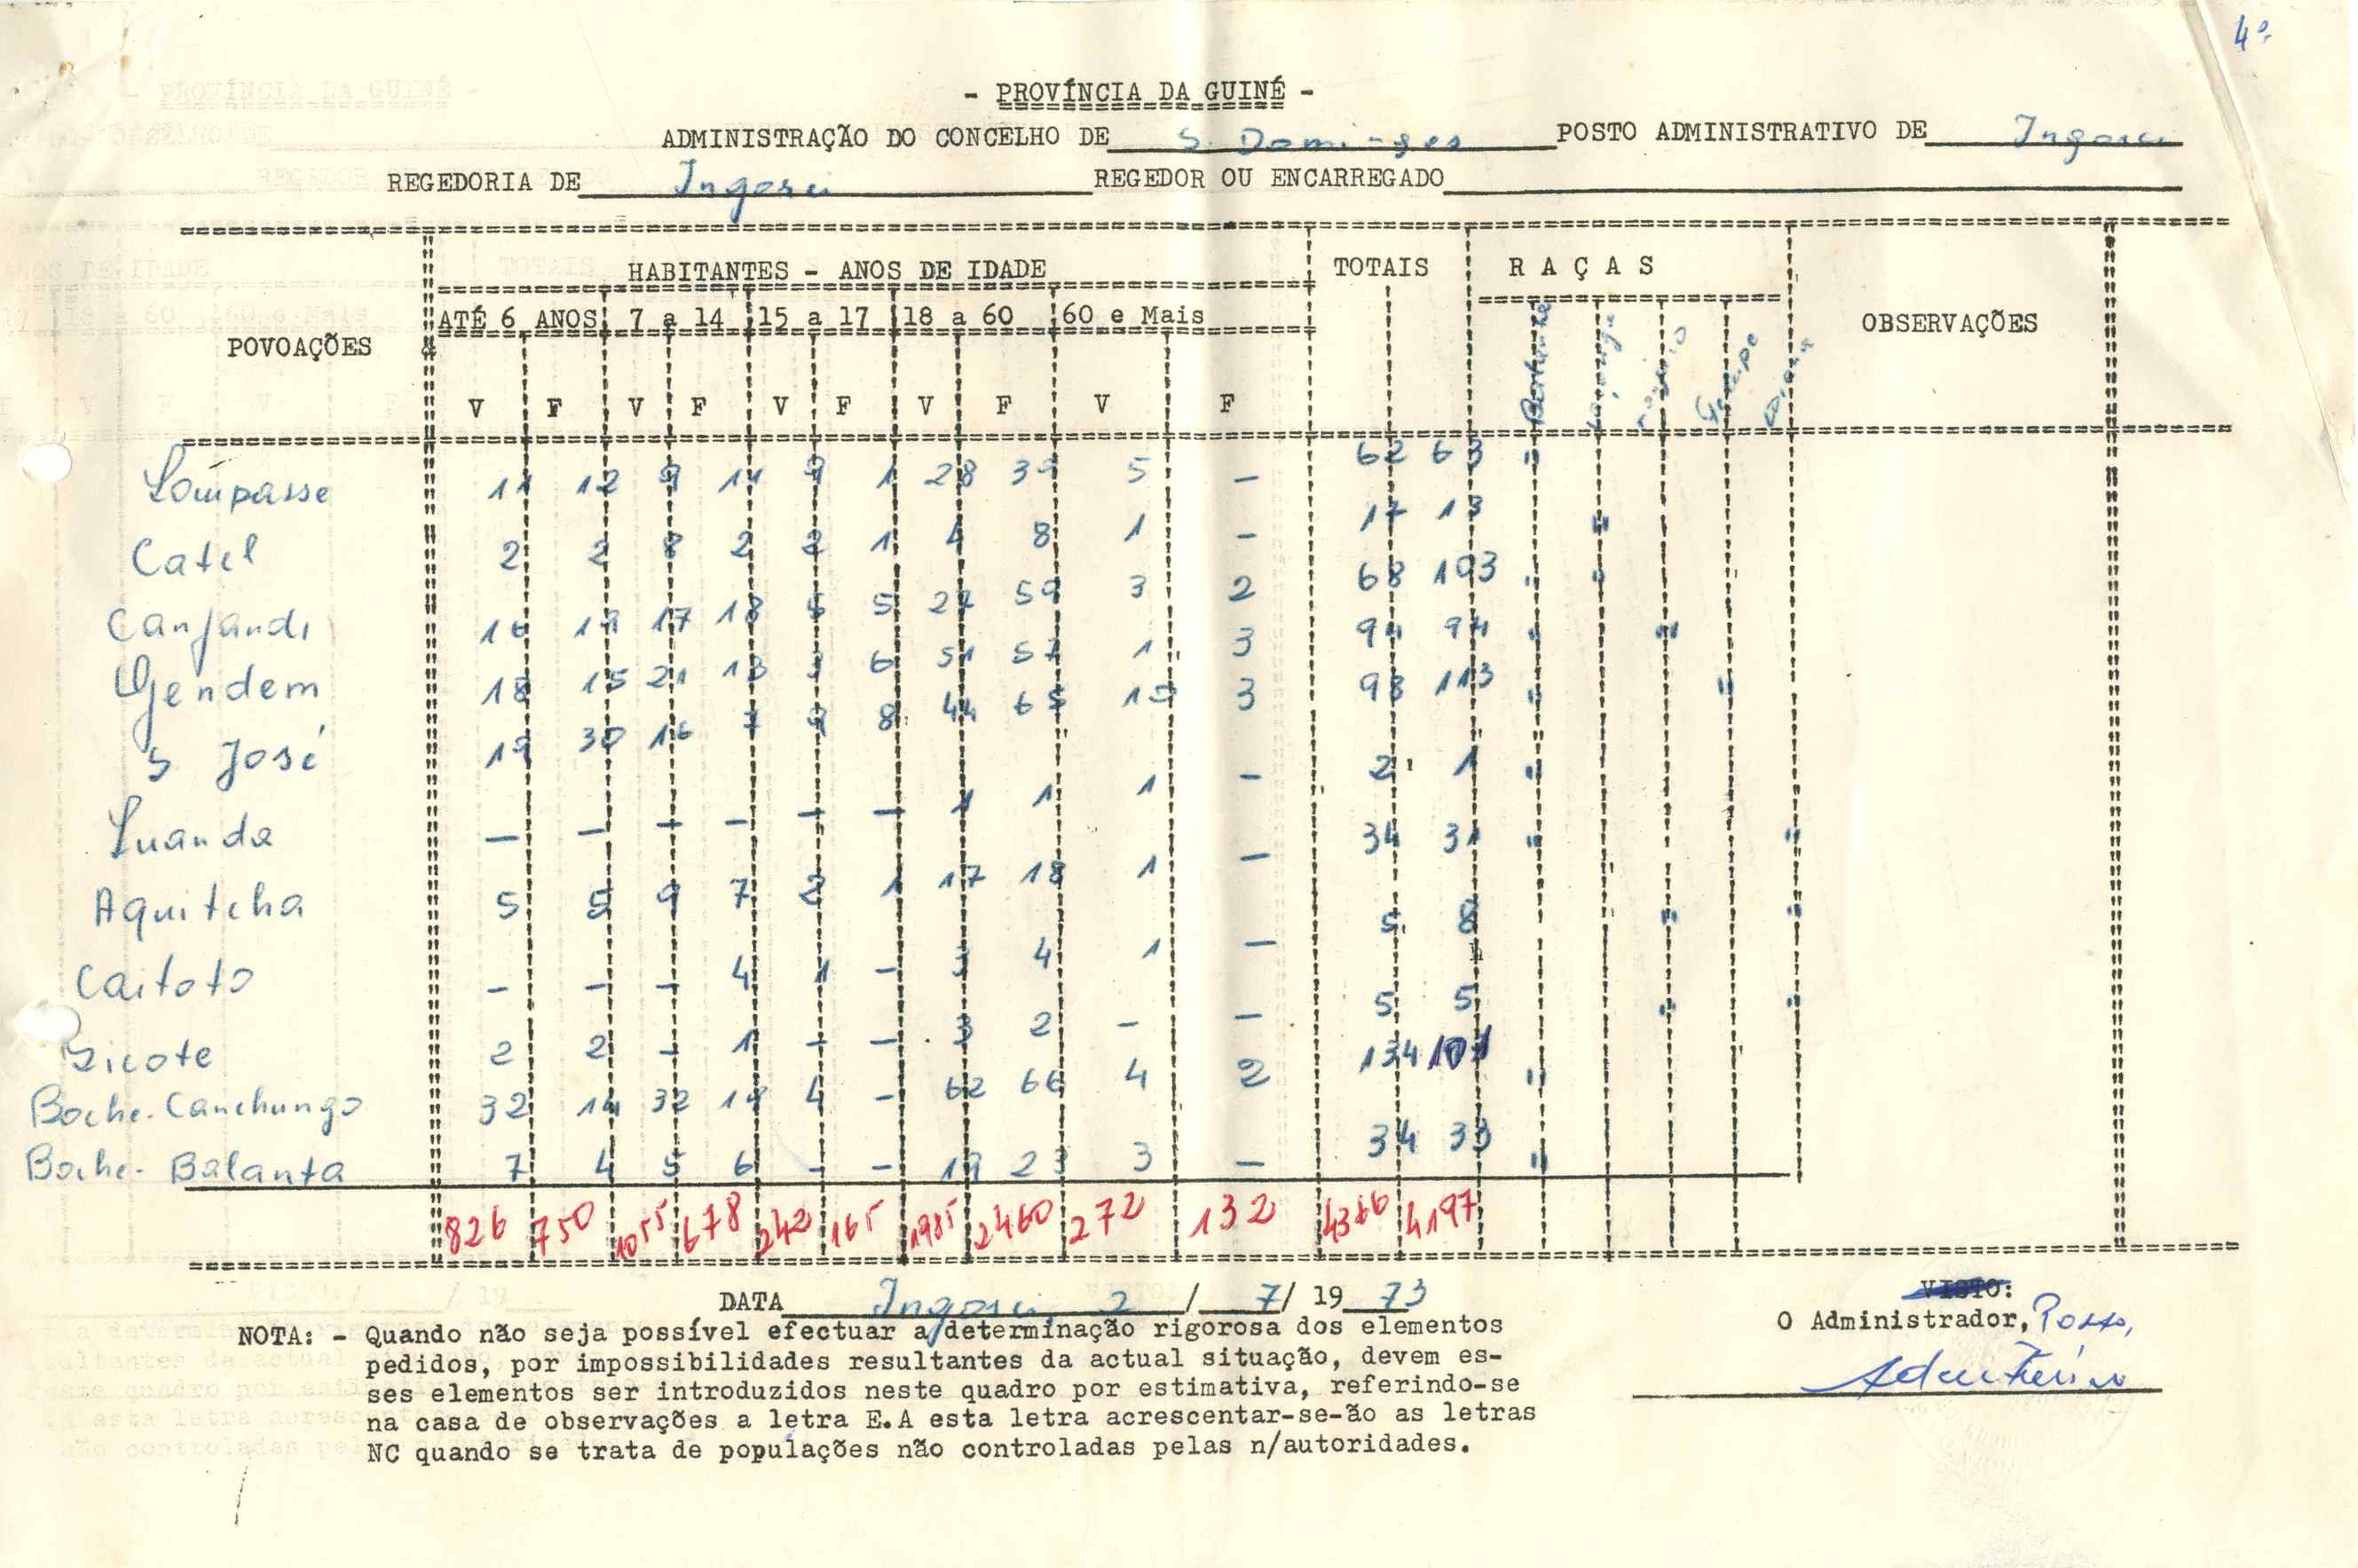 4º
- PROVÍNCIA DA GUINÉ -
ADMINISTRAÇÃO DO CONCELHO DE S. Domingos POSTO ADMINISTRATIVO DE Ingoré
REGEDORIA DE Ingoré REGEDOR OU ENCARREGADO
POVOAÇÕES HABITANTES - ANOS DE IDADE TOTAIS RAÇAS OBSERVAÇÕES
ATÉ 6 ANOS 7 a 14 15 a 17 18 a 60 60 e Mais
V F V F V F V F V F
Lompasse 11 12 9 11 9 1 28 39 5 - 62 63 "
Catel 2 2 8 2 2 1 4 8 1 - 17 13 "
Canjandi 16 19 17 18 5 5 27 59 3 2 68 103 " "
Gendem 18 15 21 13 3 6 51 57 1 3 94 94 " "
S José 19 30 16 7 9 8 44 65 10 3 98 113 " "
Luanda - - - - - - 1 1 1 - 2 1 "
Aquitcha 5 5 9 7 2 1 17 18 1 - 34 31 " "
Caitoto - - - 4 1 - 3 4 1 - 5 8 " "
Sicote 2 2 - 1 - - 3 2 - - 5 5 " "
Boche-Canchungo 32 14 32 19 4 - 62 66 4 2 134 101 "
Boche-Balanta 7 4 5 6 - - 19 23 3 - 34 33 "
826 750 1055 678 242 165 1985 2460 272 132 4380 4197
DATA Ingoré 2 / 7 / 19 73
VISTO:
O Administrador, Posto,
NOTA: - Quando não seja possível efectuar a determinação rigorosa dos elementos
pedidos, por impossibilidades resultantes da actual situação, devem es-
ses elementos ser introduzidos neste quadro por estimativa, referindo-se
na casa de observações a letra E.A esta letra acrescentar-se-ão as letras
NC quando se trata de populações não controladas pelas n/autoridades.